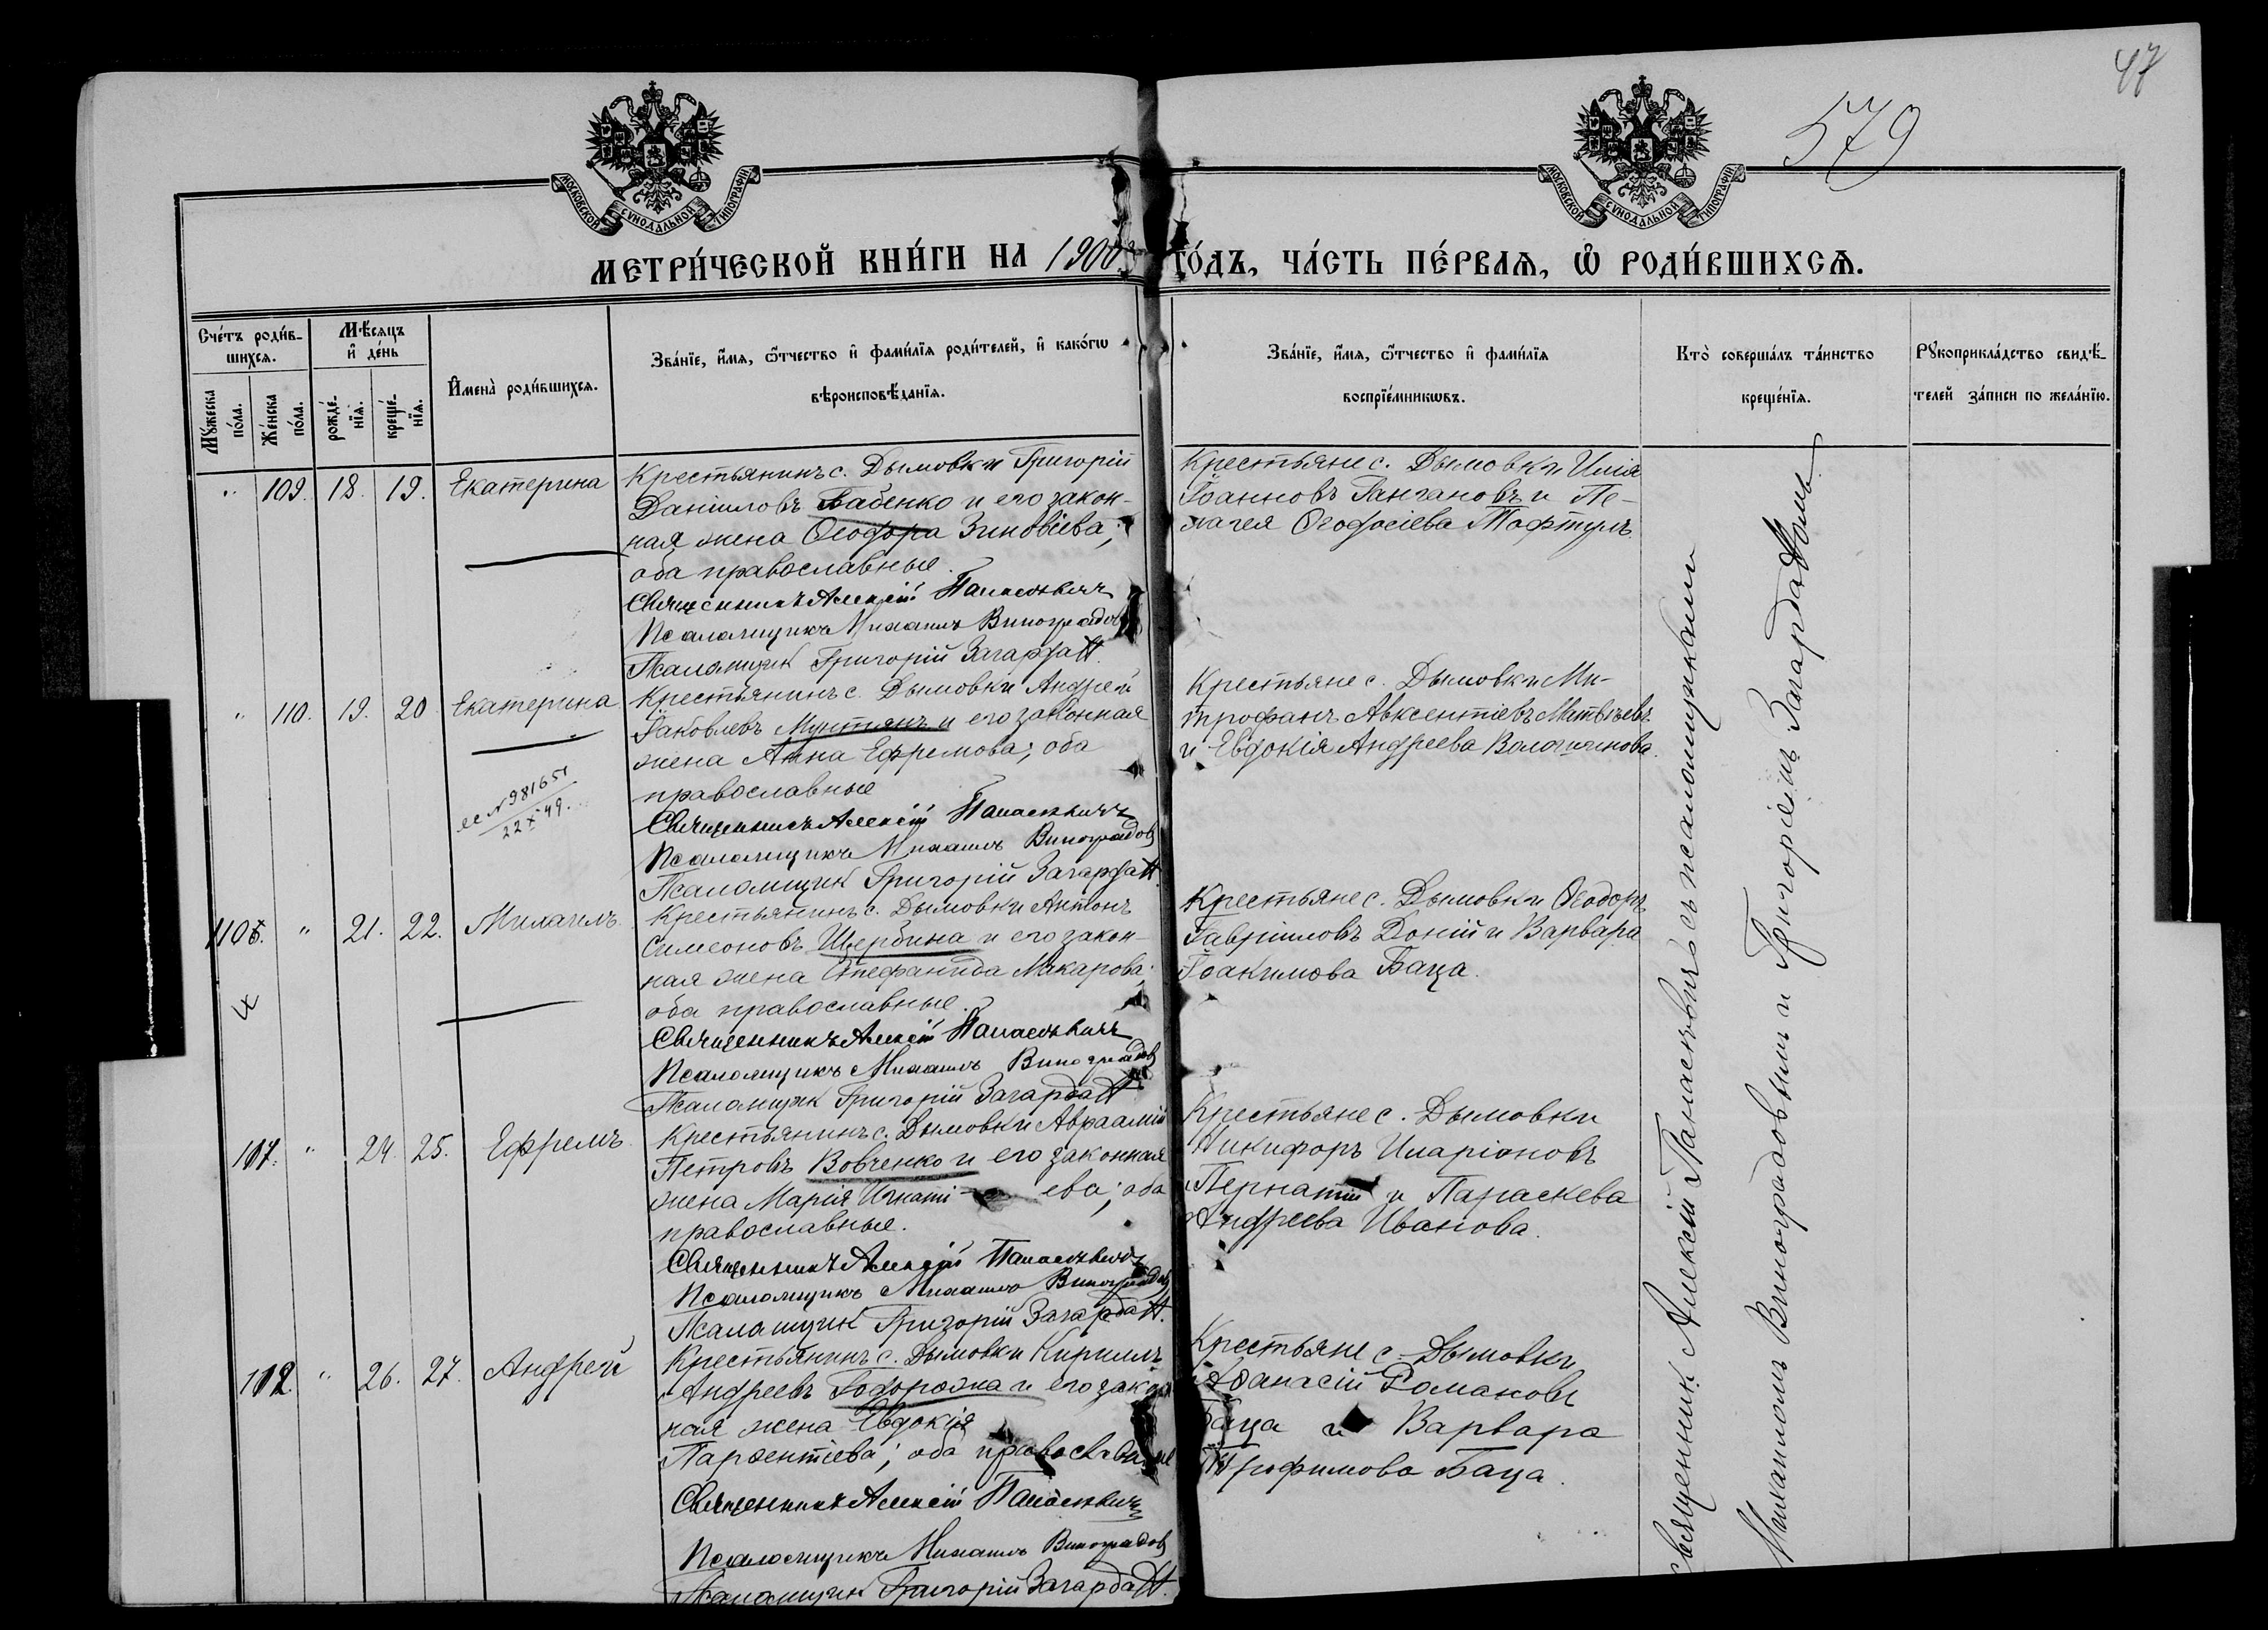 47
579
МОСКОВСКОЙ СѴНОДАЛЬНОЙ ТИПОГРАФІИ
МОСКОВСКОЙ СѴНОДАЛЬНОЙ ТИПОГРАФІИ
МЕТРИ́ЧЕСКОЙ КНИ́ГИ НА 1900 ГО́ДЪ, ЧА́СТЬ ПЕ́РВАѦ, Ѡ҆ РОДИ́ВШИХСѦ.
Сче́тъ роди́в-
шихсѧ.
Мꙋ́жеска по́ла.
Же́нска по́ла.
Мѣ́сѧцъ и҆ де́нь
рожде́-
нїѧ.
креще́-
нїѧ.
И҆мена̀ роди́вшихсѧ.
Зва́нїе, и҆́мѧ, ѻ҆́тчество и҆ фами́лїѧ роди́телей, и҆ како́гѡ
вѣроисповѣ́данїѧ.
Зва́нїе, и҆́мѧ, ѻ҆́тчество и҆ фами́лїѧ
воспрїе́мникѡвъ.
Кто̀ соверша́лъ та́инство
креще́нїѧ.
Рꙋкоприкла́дство свидѣ́-
телей за́писи по жела́нїю.
" 109. 18. 19. Екатерина
Крестьянинъ с. Дымовки Григорій
Даніиловъ Бабенко и его закон-
ная жена Ѳеодора Зиновіева;
оба православные.
Священникъ Алексій Панасевичъ
Псаломщикъ Михаилъ Виноградовъ
Псаломщик Григорій Загарда
Крестьяне с. Дымовки Илія
Іоанновъ Гангановъ и Пе-
лагея Ѳеодосіева Тофтулъ
" 110. 19. 20 Екатерина
22 X 49.
Крестьянинъ с. Дымовки Андрей
Іаковлевъ Мунтянъ и его законная
жена Анна Ефремова; оба
православные
Священникъ Алексій Панасевичъ
Псаломщикъ Михаилъ Виноградовъ
Псаломщик Григорій Загарда
Крестьяне с. Дымовки Ми-
трофанъ Авксентіевъ Матвѣевъ
и Евдокія Андреева
" 21. 22. Михаилъ
Крестьянинъ с. Дымовки Антонъ
Симеоновъ Щербина и его закон-
ная жена Стефанида Макарова;
оба православные.
Священникъ Алексій Панасевичъ
Псаломщикъ Михаилъ Виноградовъ
Псаломщик Григорій Загарда
Крестьяне с. Дымовки Ѳеодоръ
Гавріиловъ Доній и Варвара
Іоакимова Баца.
" 24. 25. Ефремъ
Крестьянинъ с. Дымовки Авраамій
Петровъ Вовченко и его законная
жена Марія Игнаті- ева; оба
православные.
Священникъ Алексій Панасевичъ
Псаломщикъ Михаилъ Виноградовъ
Псаломщик Григорій Загарда
Крестьяне с. Дымовки
Никифоръ Иларіоновъ
Пернатій и Параскева
Андреева Иванова.
112 " 26. 27. Андрей
Крестьянинъ с. Дымовки Кириллъ
Андреевъ и его закон
ная жена Евдокія
Парѳентіева; оба православные
Священникъ Алексій Панасевичъ
Псаломщикъ Михаилъ Виноградовъ
Псаломщик Григорій Загарда
Крестьяне с. Дымовки
Аѳанасій Романовъ
Баца и Варвара
Трофимова Баца.
Священник Алексій Панасевичъ съ псаломщиками
Михаиломъ Виноградовымъ и Григоріемъ Загардаомъ